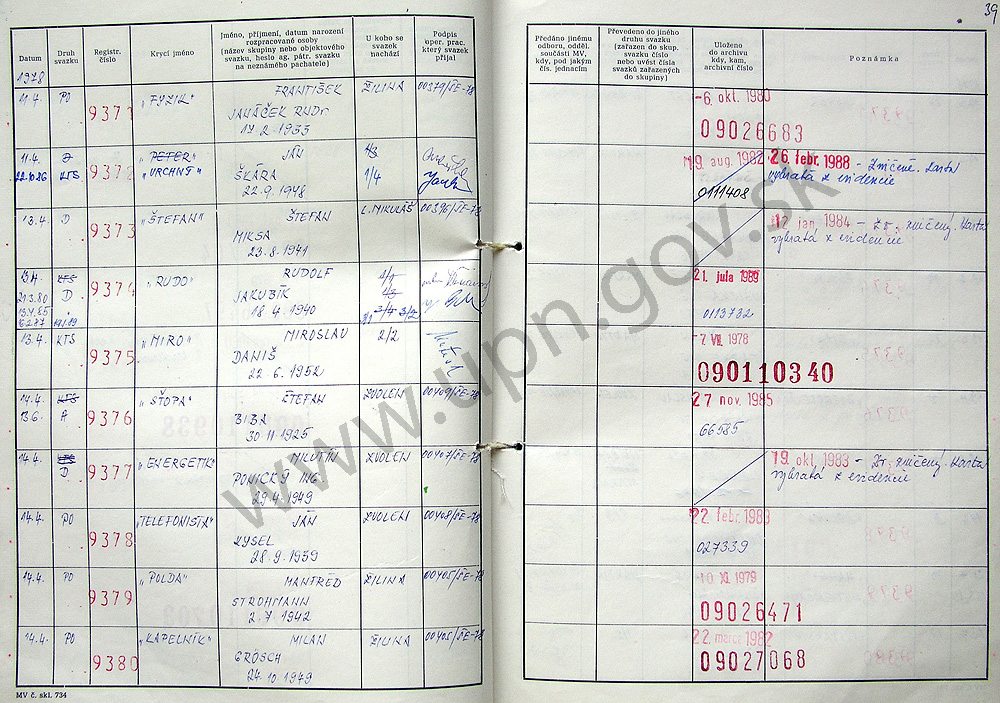 39
Datum
Druh svazku
Registr. číslo
Krycí jméno
Jméno, příjmení, datum narození
rozpracované osoby
(název skupiny nebo objektového
svazku, heslo ag. pátr. svazku
na neznámého pachatele)
U koho se
svazek
nachází
Podpis
oper. prac.
který svazek
přijal
Předáno jinému
odboru, odděl.
součásti MV,
kdy, pod jakým
čís. jednacím
Převedeno do jiného
druhu svazku
(zařazen do skup.
svazku číslo
nebo uvést čísla
svazků zařazených
do skupiny)
Uloženo
do archivu
kdy, kam,
archivní číslo
Poznámka
1978
11.4. PO 9371 "FYZIK" FRANTIŠEK ŽILINA 00379/ŠE-78 -6. okt. 1980
JANÁČEK RUDr
17.2.1935 09026683
11.4. "PETER" JÁN 4/3 19. aug. 1982 26. febr. 1988 - Zničené. Karta
22.10.86 KTS 9372 "URCHNÝ" ŠKÁRA 1/4 vybratá z evidencie
22.9.1948 0111408
13.4. D 9373 "ŠTEFAN" ŠTEFAN L. MIKULÁŠ 00396/ŠE-78 12. jan. 1984 - Zv. zničený. Karta
MIKSA vybratá z evidencie
23.8.1941
13.4. KTS 9374 "RUDO" RUDOLF 21. júla 1989
21.3.80 D JAKUBÍK
18.4.1940 3/2 0113732
13.4. KTS 9375 "MIRO" MIROSLAV 2/2 -7. VII. 1978
DANIŠ
22.6.1952 090110340
14.4. KTS 9376 "ŠTOPA" ŠTEFAN ZVOLEN 00409/ŠE-78 27. nov. 1985
13.6. A BIBA
30.11.1925 66585
14.4. D 9377 "ENERGETIK" MILUTÍN ZVOLEN 00407/ŠE-78 19. okt. 1983 - Zv. zničený. Karta
PONICKÝ ING. vybratá z evidencie
29.4.1949
14.4. PO 9378 "TELEFONISTA" JÁN ZVOLEN 00408/ŠE-78 22. febr. 1983
KYSEL
28.9.1939 027339
14.4. PO 9379 "POLDA" MANFRÉD ŽILINA 00405/ŠE-78 10. XI. 1979
STROHMANN
2.7.1942 09026471
14.4. PO 9380 "KAPELNÍK" MILAN ŽILINA 00405/ŠE-78 22. marca 1982
GRÖSCH
24.10.1949 09027068
MV č. skl. 734
www.upn.gov.sk